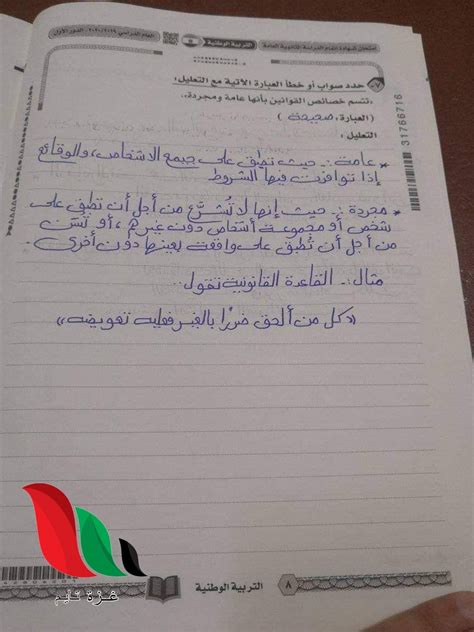 امتحان شهادة إتمام الدراسة الثانوية العامة التربية الوطنية العام الدراسي ٢٠٢٠/٢٠١٩ - الدور الأول
٧- حدد صواب أو خطأ العبارة الآتية مع التعليل:
.تتسم خصائص القوانين بأنها عامة ومجردة.
(العبارة: صحيحة )
التعليل :
* عامة :- حيث تطبق على جميع الأشخاص والوقائع
إذا توافرت فيها الشروط
* مجردة :- حيث إنها لا تُشرَّع من أجل أن تطبق على
شخص أو مجموعة أشخاص دون غيرهم، أو تسن
من أجل أن تُطبق على واقعة بعينها دون أخرى.
مثال :- القاعدة القانونية تقول..
«كل من ألحق ضررًا بالغير فعليه تعويضه»
31766716
غزة تايم
التربية الوطنية
٨